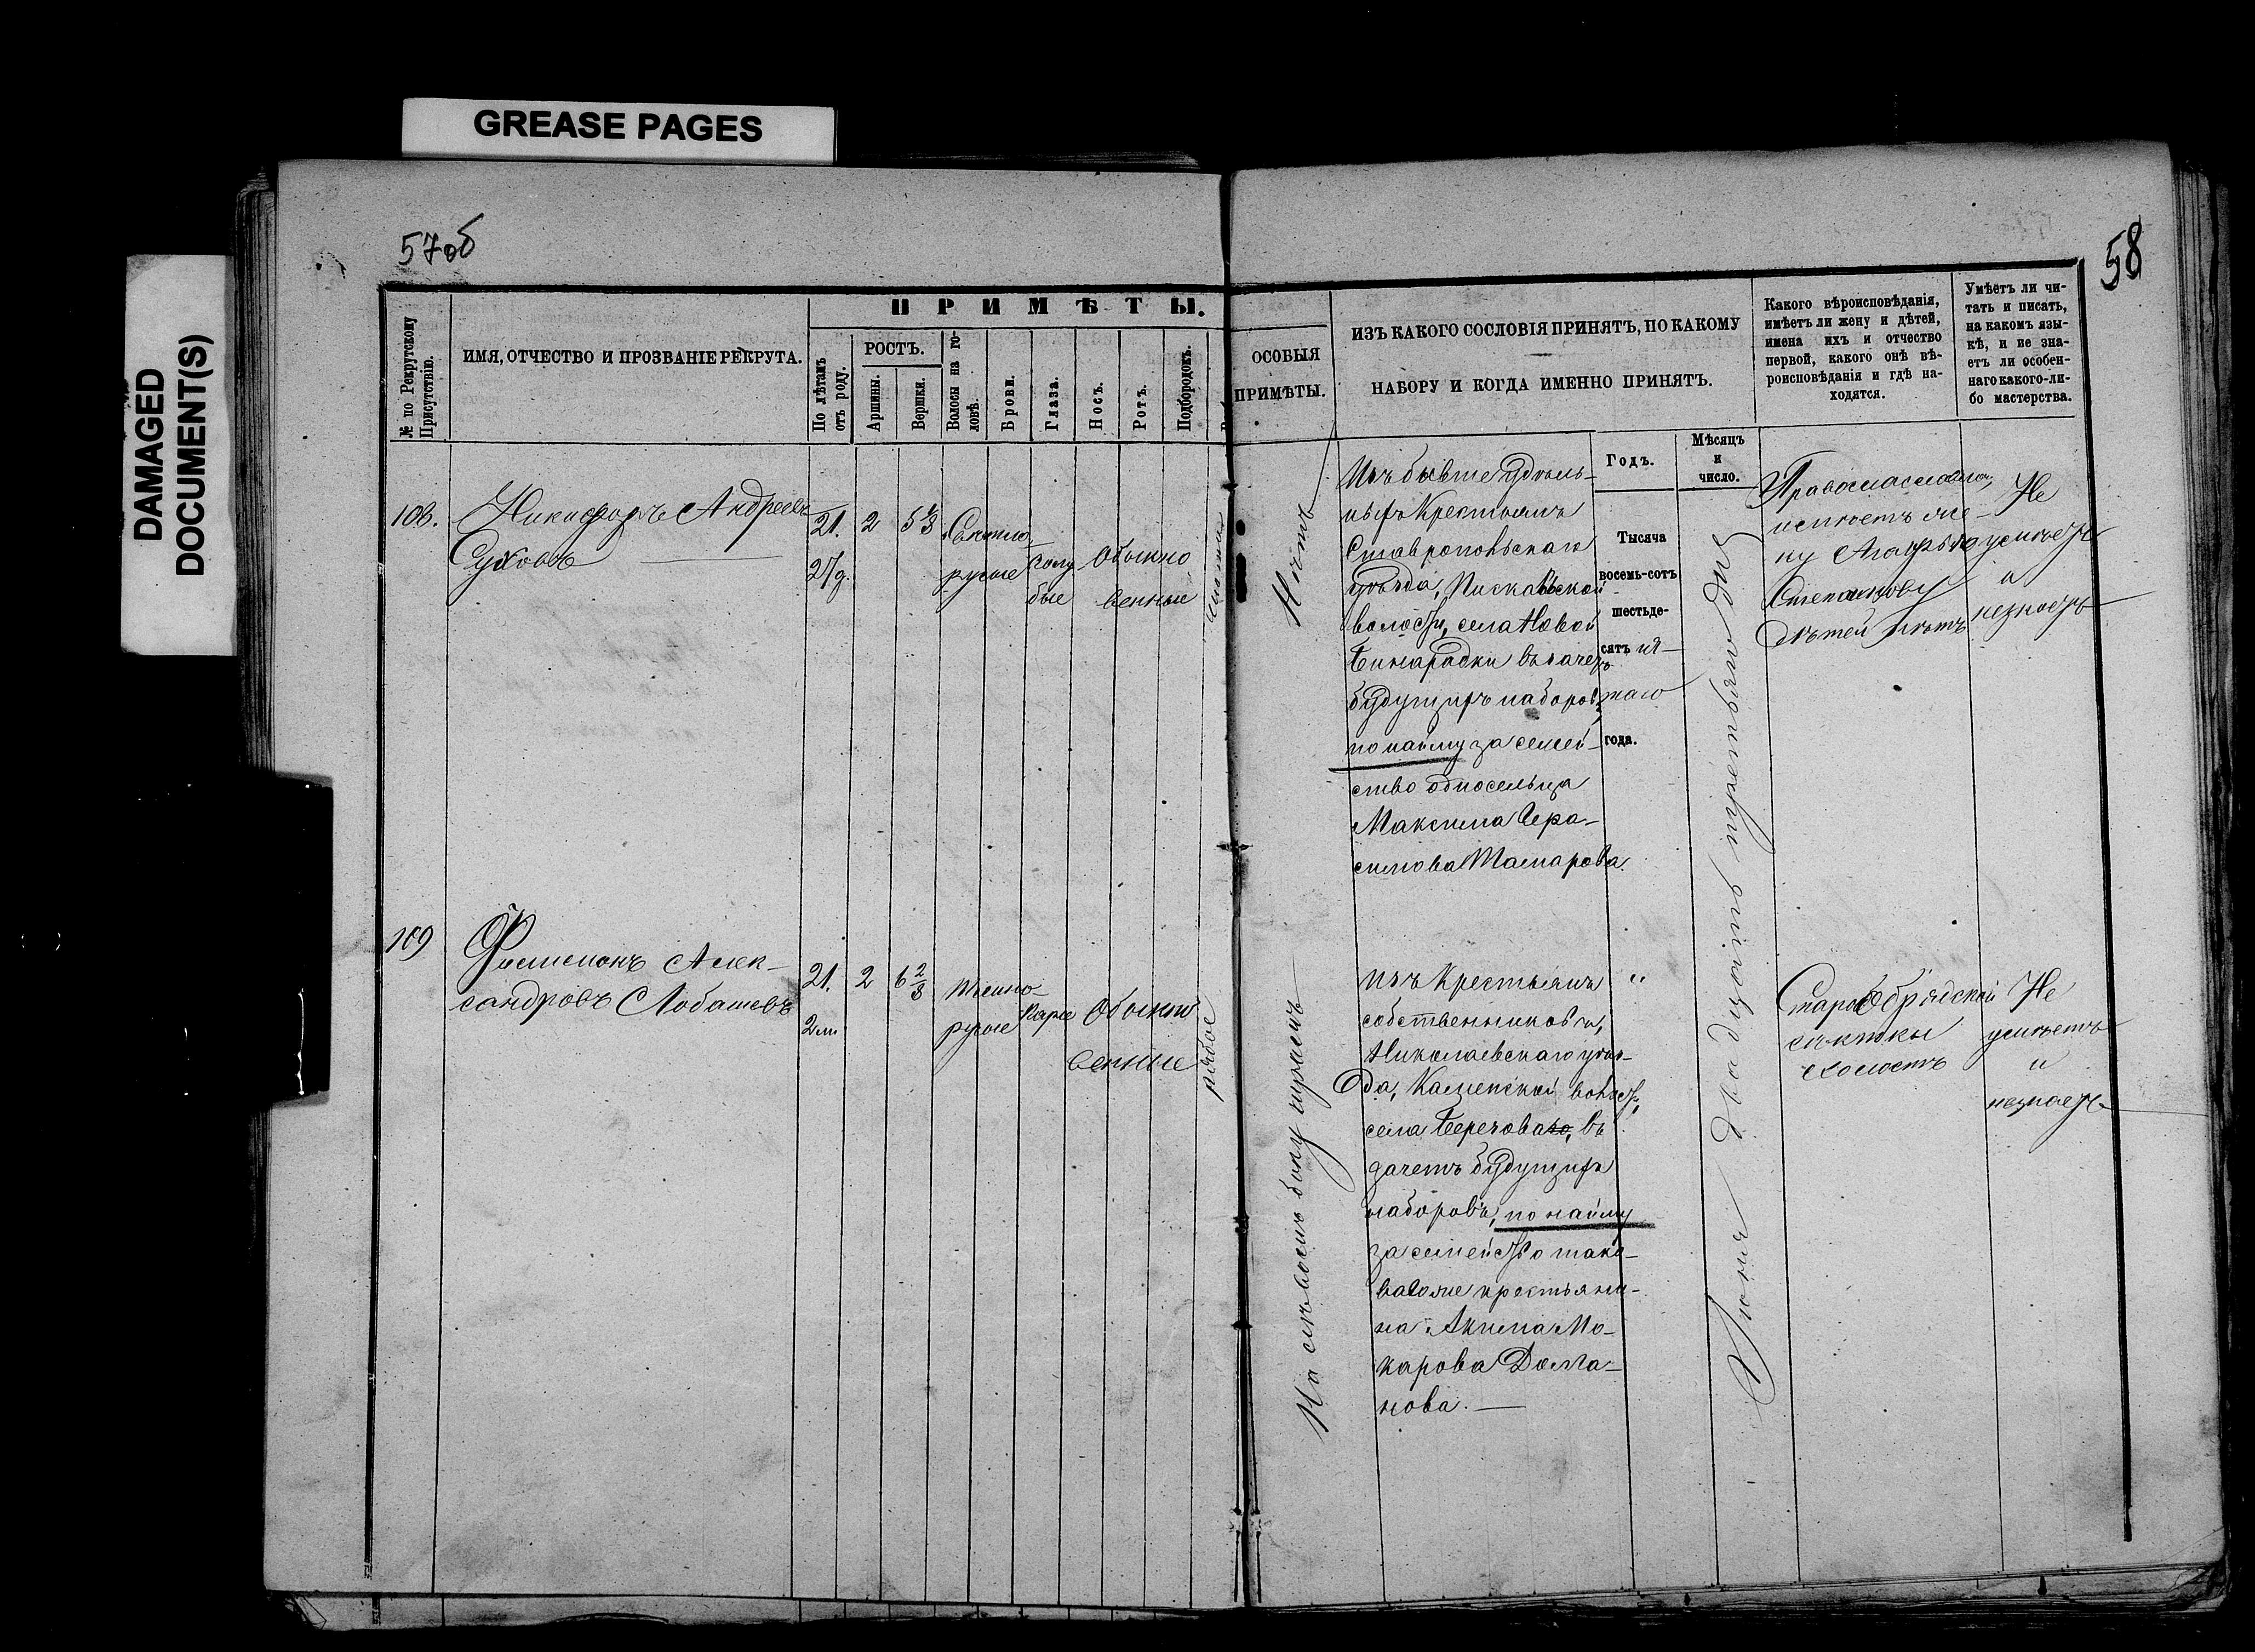 GREASE PAGES
DAMAGED
DOCUMENT(S)
57об
58
ПРИМѢТЫ.
№ по Рекрутскому
Присутствію.
ИМЯ, ОТЧЕСТВО И ПРОЗВАНІЕ РЕКРУТА.
По лѣтамъ
отъ роду.
РОСТЪ.
Аршины.
Вершки.
Волосы на го-
ловѣ.
Брови.
Глаза.
Носъ.
Ротъ.
Подбородокъ.
ОСОБЫЯ
ПРИМѢТЫ.
ИЗЪ КАКОГО СОСЛОВІЯ ПРИНЯТЪ, ПО КАКОМУ
НАБОРУ И КОГДА ИМЕННО ПРИНЯТЪ.
Какого вѣроисповѣданія,
имѣетъ ли жену и дѣтей,
имена ихъ и отчество
первой, какого онѣ вѣ-
роисповѣданія и гдѣ на-
ходятся.
Умѣетъ ли чи-
тать и писать,
на какомъ язы-
кѣ, и не зна-
етъ ли особен-
наго какого-ли-
бо мастерства.
Годъ.
Мѣсяцъ
и
число.
108.
Никифоръ Андреевъ
Суховъ
21.
2
5 1/8
Свѣтло
русые
голу
бые
Обыкно
венные
Нѣтъ
Изъ бывше удѣль-
ныхъ Крестьянъ
Ставропольскаго
уѣзда, Пискальской
волости, села Новой
Бинарадки въ зачетъ
будущихъ наборовъ,
по найму за семей-
ство односельца
Максима Гера-
симова Тамарова.
Тысяча
восемь-сотъ
шестьде-
сятъ пя-
таго
года.
Іюня двадцать третьяго дня
Православнаго,
имѣетъ же-
ну Агафью
Степанову
дѣтей нѣтъ
Не
умѣетъ
и
незнаетъ
109
Филимонъ Алек-
сандровъ Лобашевъ
21.
2м
2
6 2/8
темно-
русые
Каріе
Обыкно
венные
рябое
На лѣвомъ боку шрамъ
изъ Крестьянъ
собственниковъ,
Николаевскаго уѣз-
да, Каменской волости,
села Березоваго, въ
зачетъ будущихъ
наборовъ, по найму
за семейство тако-
ваго же крестьяни-
на Акима Ма-
карова Дома-
нова.
"
Старообрядской
секты
холостъ
Не
умѣетъ
и
незнаетъ